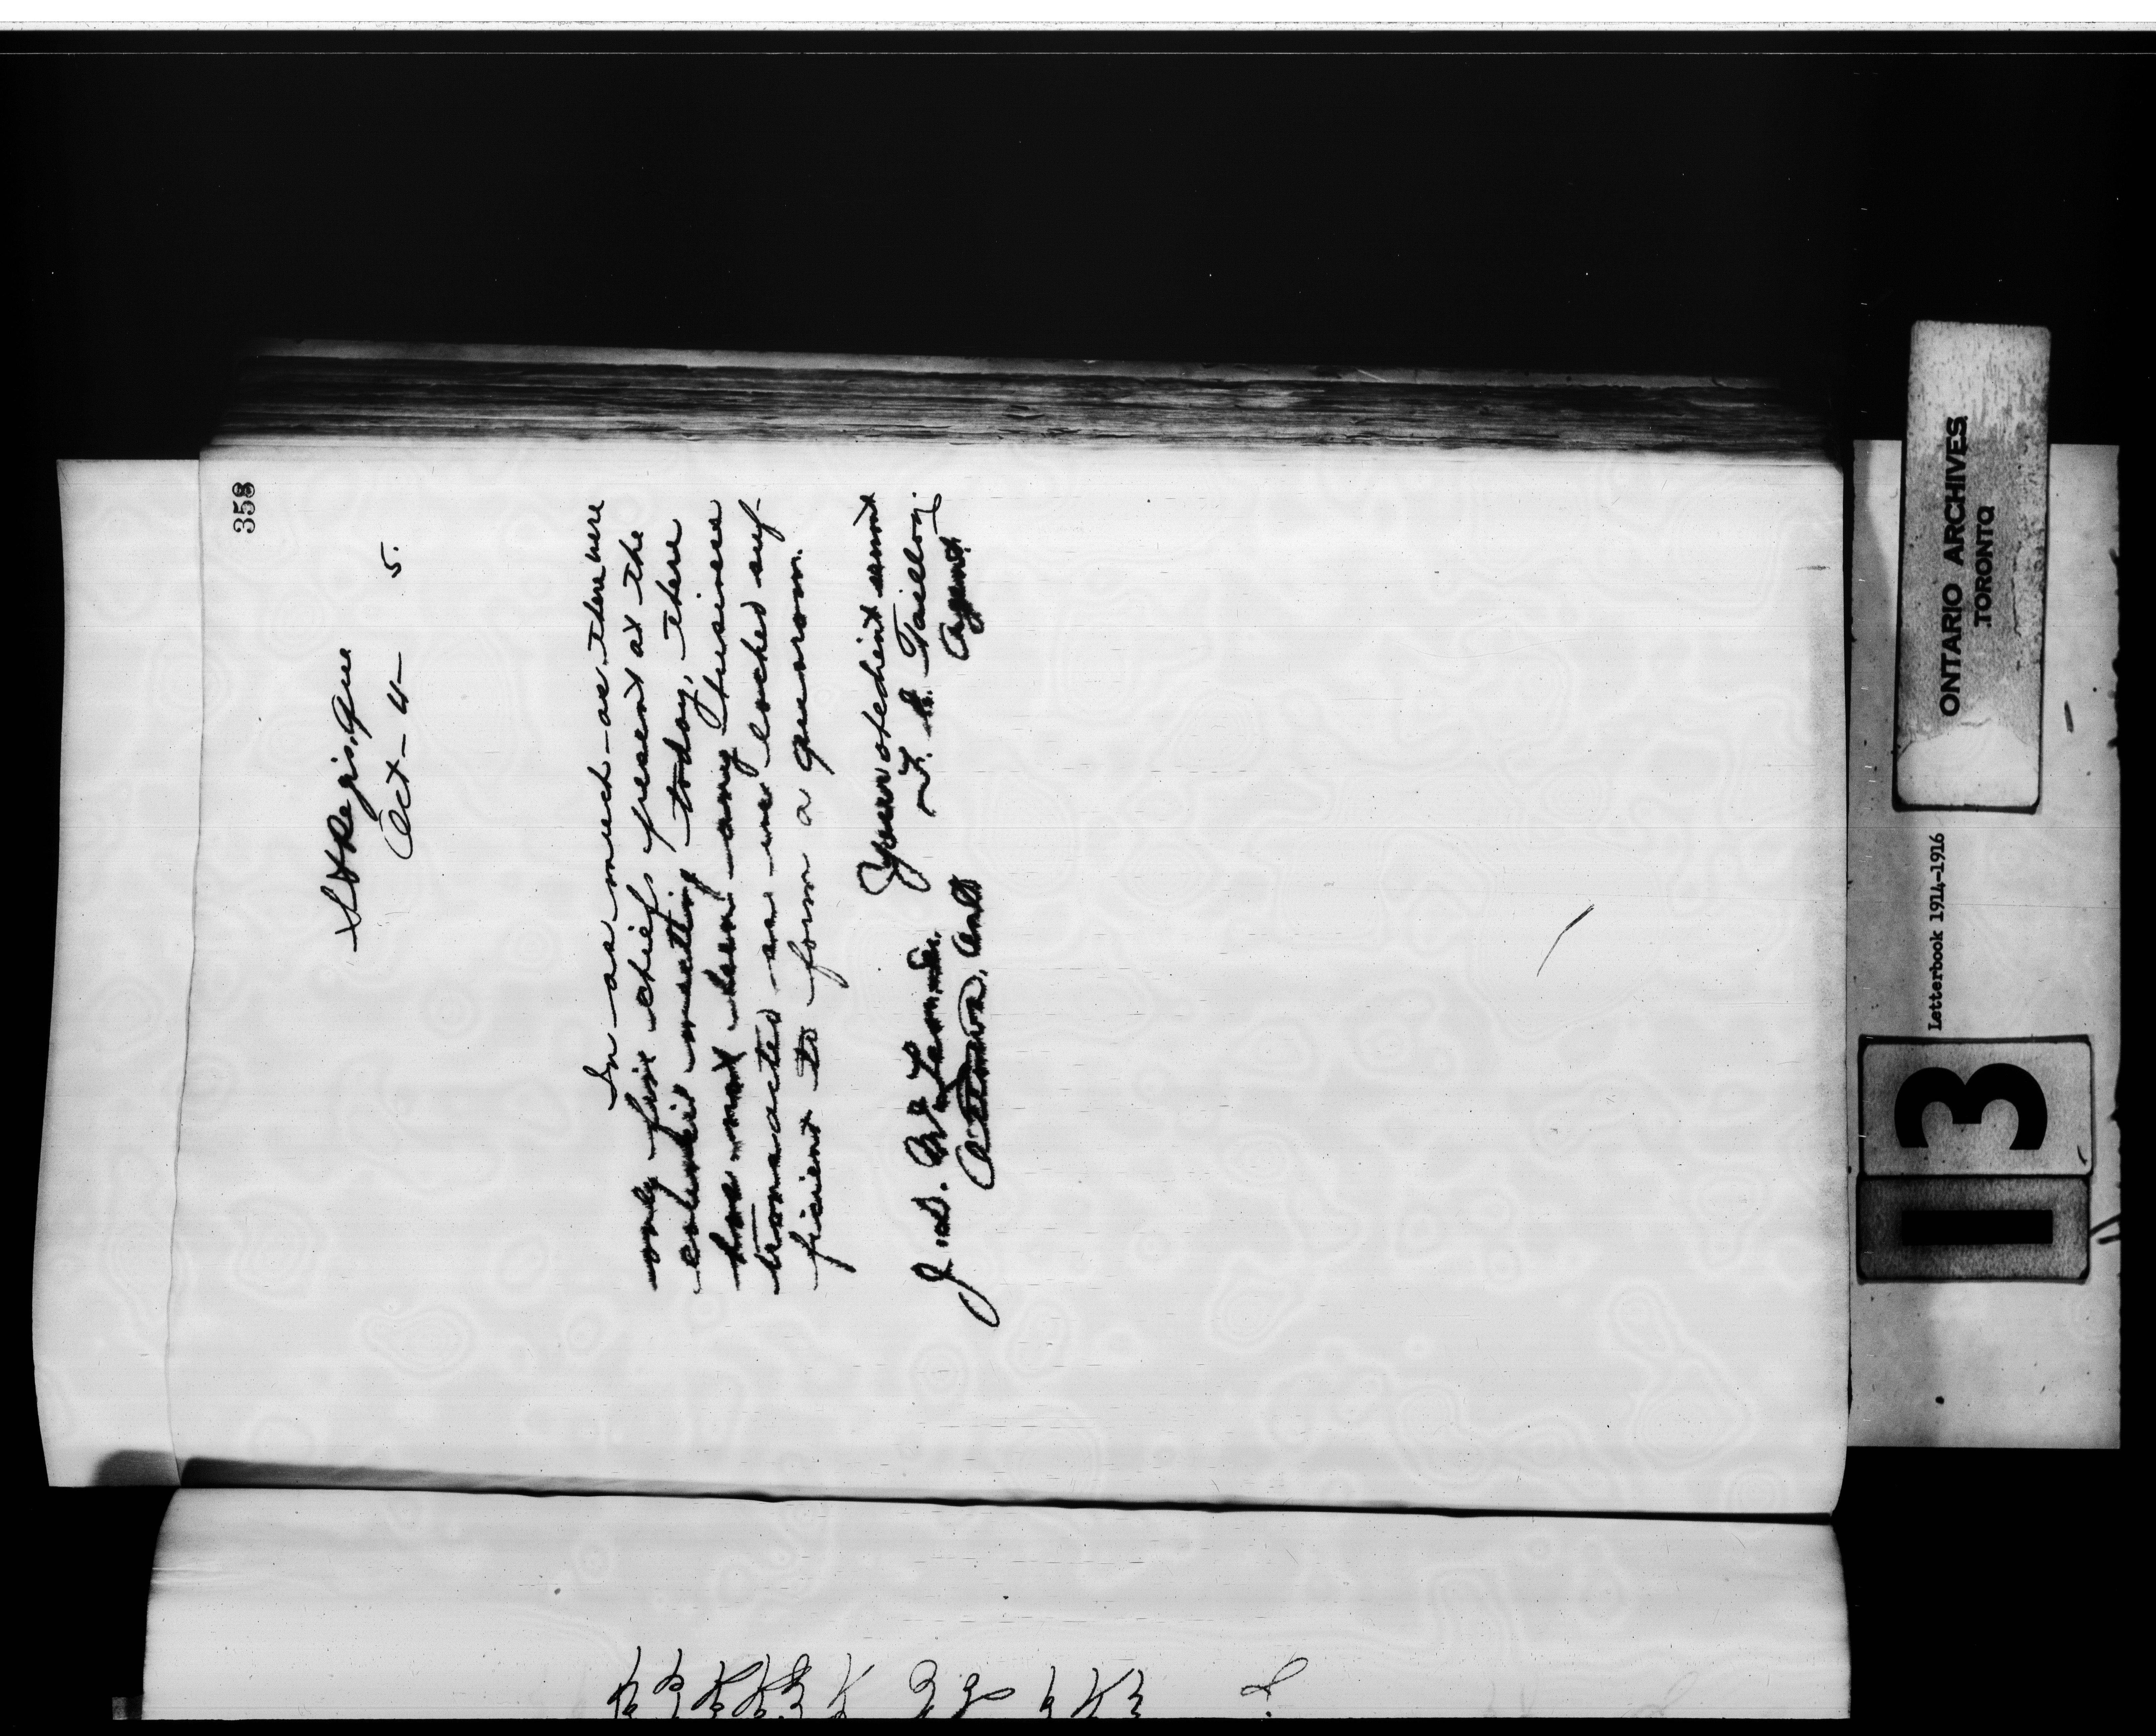 358
St Regis, Que
Oct - 4 - 5.
In as much as there were
only five chiefs present at the
council meeting today, there
has not been any business
transacted as we lacked suf-
ficient to form a quorom.
Your obedient servt
Agent
J. D.
Ottawa, Ont
ONTARIO ARCHIVES
TORONTO
Letterbook 1914-1916
13